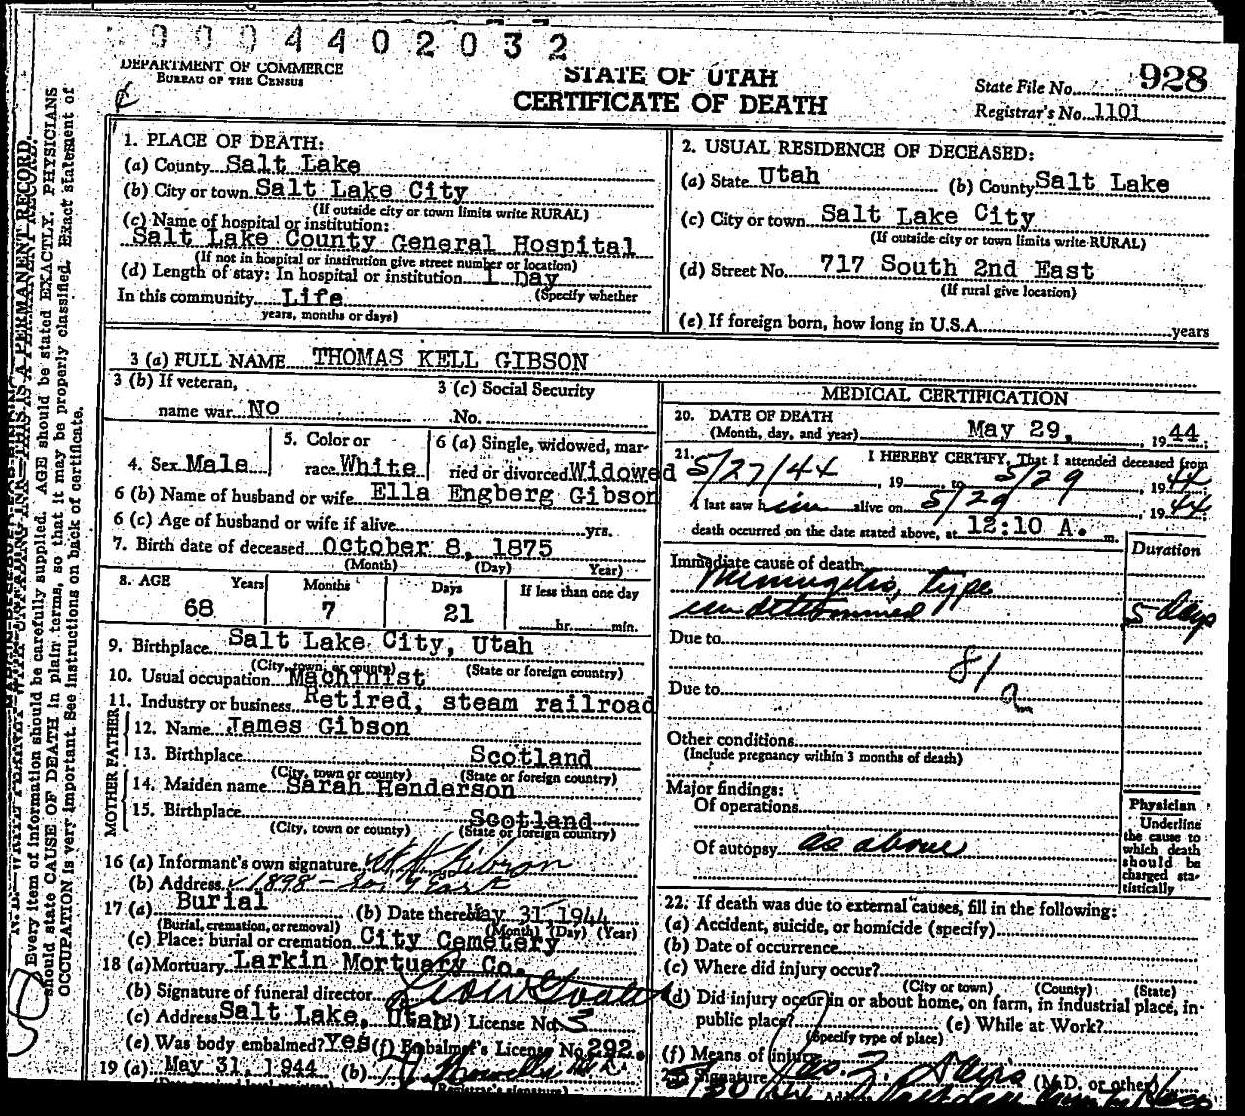 0004402032
DEPARTMENT OF COMMERCE
BUREAU OF THE CENSUS
STATE OF UTAH
CERTIFICATE OF DEATH
State File No. 928
Registrar's No. 1101
1. PLACE OF DEATH:
(a) County Salt Lake
(b) City or town Salt Lake City
(If outside city or town limits write RURAL)
(c) Name of hospital or institution:
Salt Lake County General Hospital
(If not in hospital or institution give street number or location)
(d) Length of stay: In hospital or institution 1 Day
(Specify whether
In this community Life
years, months or days)
2. USUAL RESIDENCE OF DECEASED:
(a) State Utah (b) County Salt Lake
(c) City or town Salt Lake City
(If outside city or town limits write RURAL)
(d) Street No. 717 South 2nd East
(If rural give location)
(e) If foreign born, how long in U.S.A. years
3 (a) FULL NAME THOMAS KELL GIBSON
3 (b) If veteran,
name war No
3 (c) Social Security
No.
4. Sex Male
5. Color or
race White
6 (a) Single, widowed, mar-
ried or divorced Widowed
6 (b) Name of husband or wife Ella Engberg Gibson
6 (c) Age of husband or wife if alive yrs.
7. Birth date of deceased October 8, 1875
(Month) (Day) Year)
8. AGE Years Months Days If less than one day
68 7 21 hr. min.
9. Birthplace Salt Lake City, Utah
(City, town, or county) (State or foreign country)
10. Usual occupation Machinist
11. Industry or business Retired, steam railroad
FATHER
12. Name James Gibson
13. Birthplace Scotland
(City, town or county) (State or foreign country)
MOTHER
14. Maiden name Sarah Henderson
15. Birthplace Scotland
(City, town or county) (State or foreign country)
16 (a) Informant's own signature Gibson
(b) Address 1898 - So. 9 East
17 (a) Burial (b) Date thereof May 31, 1944
(Burial, cremation, or removal) (Month) (Day) (Year)
(c) Place: burial or cremation City Cemetery
18 (a) Mortuary Larkin Mortuary Co.
(b) Signature of funeral director
(c) Address Salt Lake, Utah (d) License No. 3
(e) Was body embalmed? Yes (f) Embalmer's License No. 292.
19 (a) May 31, 1944 (b)
MEDICAL CERTIFICATION
20. DATE OF DEATH
(Month, day, and year) May 29, 1944
21. I HEREBY CERTIFY, That I attended deceased from
5/27/44, 19 to 5/29 1944
I last saw him alive on 5/29 1944
death occurred on the date stated above, at 12:10 A. m.
Duration
Immediate cause of death
Meningitis, type
undetermined 5 days
Due to
81a
Due to
Other conditions
(Include pregnancy within 3 months of death)
Major findings:
Of operations
Of autopsy as above
Physician
Underline
the cause to
which death
should be
charged sta-
tistically
22. If death was due to external causes, fill in the following:
(a) Accident, suicide, or homicide (specify)
(b) Date of occurrence
(c) Where did injury occur?
(City or town) (County) (State)
(d) Did injury occur in or about home, on farm, in industrial place, in
public place? (e) While at Work?
(Specify type of place)
(f) Means of injury
Signature (M.D. or other)
5/30/44
Every item of information should be carefully supplied. AGE should be stated EXACTLY. PHYSICIANS
should state CAUSE OF DEATH in plain terms, so that it may be properly classified. Exact statement of
OCCUPATION is very important. See instructions on back of certificate.